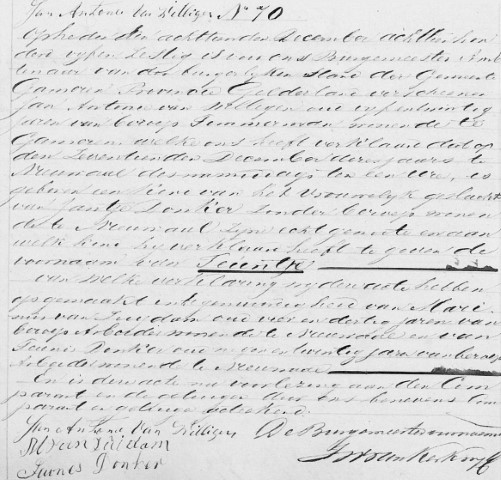 Jan Antonie van Willigen N° 70
Op heden den achttienden December achttien hon
derd vijf en zestig is voor ons Burgemeester Amb
tenaar van den burgerlijken stand der Gemeente
Gameren Provincie Gelderland verschenen
Jan Antonie van Willigen oud vijf en twintig
jaren van beroep Timmerman wonende te
Gameren welke ons heeft verklaard dat op
den zeventienden December dezes jaars te
Nieuwaal des namiddags ten een ure, is
geboren een kind van het vrouwelijk geslacht
van Jantje Donker zonder beroep wonen
de te Nieuwaal zijne echtgenoote en aan
welk kind hij verklaard heeft te geven de
voornaam van Teuntje
van welke verklaring wij deze acte hebben
opgemaakt in tegenwoordigheid van Mari
nus van Zuidam oud vier en dertig jaren van
beroep Arbeider wonende te Nieuwaal en van
Teunis Donker oud negen en twintig jaren van beroep
Arbeider wonende te Nieuwaal
En is deze acte na voorlezing aan den Com
parant en de getuigen door ons benevens Com
parant en getuigen geteekend.
Jan Antonie Van Willigen De Burgemeester voornoemd
M van Zuidam
Teunis Donker